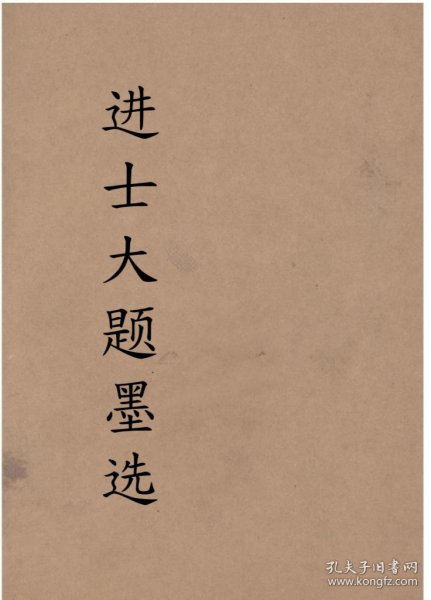 进士大题墨选
孔夫子旧书网
www.kongfz.com